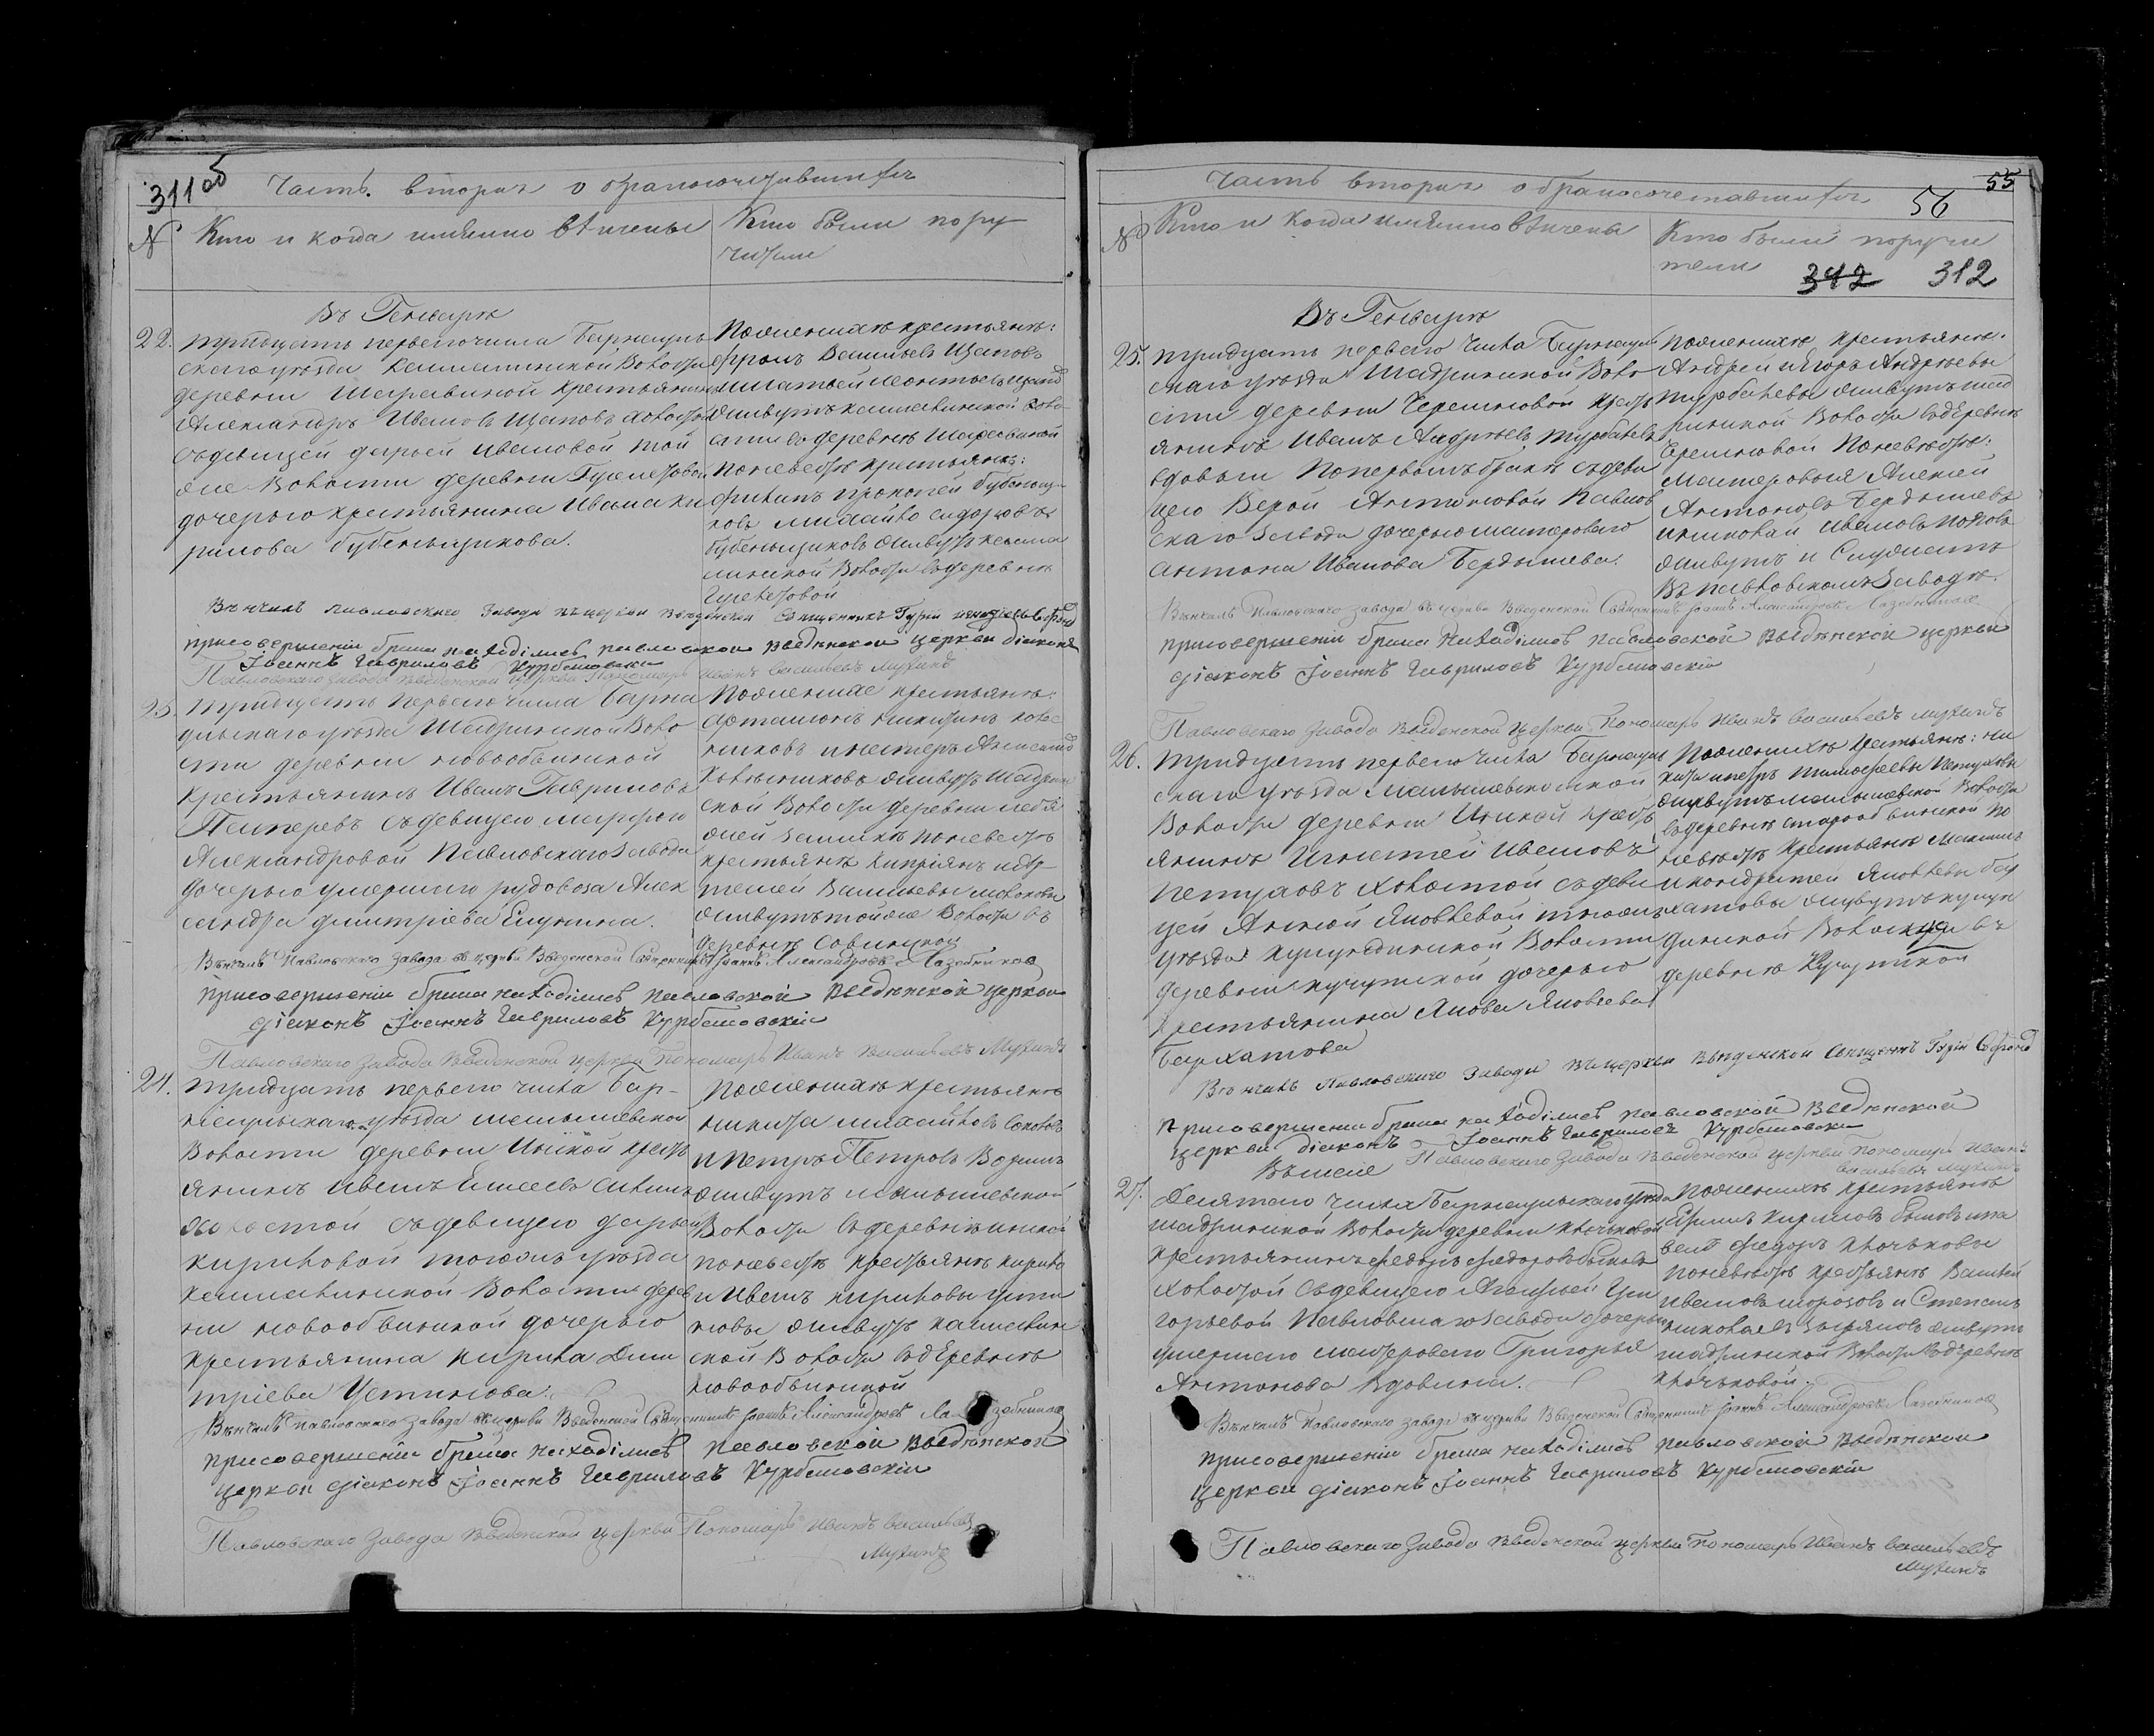 311 об
Часть вторая о бракосочетавшихся
№
Кто и когда именно венчены
Кто были пору
чители
Въ Генваре
22.
тридцать первого числа Барнауль
скаго уезда Касмалинской Волости
деревни Шаравиной крестьянинъ
Александръ Ивановъ Щаповъ холостой
съ девицей Дарьей Ивановой той
же Волости деревни
дочерью крестьянина Ивана Ки
рилова Бубенщикова.
По женихе крестьяне:
Васильевъ Щаповъ
и Матвей Леонтьевъ Щаповъ
живутъ Касмалинской Воло
сти въ деревне Шаравиной
по невесте крестьяне:
Филипъ Прокопей Бубенщи
ковъ Михайло Сидоровъ
Бубенщиковъ живутъ Касма
линской Волости въ деревне
Венчалъ Павловскаго Завода въ церкви Введенской Священникъ Гурий
при совершении брака находился Павловской Введенской церкви діаконъ
Іоаннъ Гавриловъ Курбановскій
Павловскаго Завода Введенской церкви Пономарь Иванъ Васильевъ Мухинъ
23.
тридцать первого числа Барна
ульскаго уезда Шадринской Воло
сти деревни Новообвинской
Крестьянинъ Иванъ Гавриловъ
съ девицею Марфою
Александровой Павловскаго Завода
дочерью умершаго рудовоза Алек
сандра Дмитріева Елунина.
По женихе крестьяне:
Артамонъ Никитинъ
и Нестеръ
живутъ Шадрин
ской Волости деревни Лебя
жей заимке по невесте
крестьяне Кипріянъ и
Васильевы
живутъ той же Волости въ
деревне Савинской
Венчалъ Павловскаго Завода въ церкви Введенской Священникъ Іоаннъ Александровъ Лазебниковъ
при совершеніи брака находился Павловской Введенской церкви
діаконъ Іоаннъ Гавриловъ Курбановскій
Павловскаго Завода Введенской церкви Пономарь Иванъ Васильевъ Мухинъ
24.
тридцать первого числа Бар-
наульскаго уезда Малышевской
Волости деревни Инской кресть
янинъ Иванъ Елисеевъ
холостой съ девицею Дарьей
Кириловой того жъ уезда
Касмалинской Волости дерев
ни Новообвинской дочерью
крестьянина Кирила Дми
тріева Устинова.
По женихе крестьяне
Никита Михайловъ Соколовъ
и Петръ Петровъ
живутъ Малышевской
Волости въ деревне Инской
по невесте крестьяне Кирило
и Иванъ Кириловы Усти
новы живутъ Касмалин
ской Волости въ деревне
Новообвинской
Венчалъ Павловскаго Завода въ церкви Введенской Священникъ Іоаннъ Александровъ Лазебниковъ
при совершеніи брака находился Павловской Введенской
церкви діаконъ Іоаннъ Гавриловъ Курбановскій
Павловскаго Завода Введенской церкви Пономарь Иванъ Васильевъ
Мухинъ
Часть вторая о бракосочетавшихся
56
55
№
Кто и когда именно венчены
Кто были поручи
тели
312 312
Въ Генваре
25.
тридцать перваго числа Барнауль
скаго уезда Шадринской Воло
сти деревни Черемновой кресть
янинъ Иванъ Андреевъ Турбаевъ
вдовый по первомъ браке съ деви
цею Верой Антоновой Павлов
скаго Завода дочерью мастероваго
Антона Иванова Бердышева.
По женихе крестьяне:
Андрей и Егоръ Андреевы
живутъ Шад
ринской Волости въ деревне
Черемновой по невесте:
мастеровыя Алексей
Антоновъ Бердышевъ
и Николай Ивановъ Поповъ
живутъ и служатъ
въ Павловскомъ Заводе.
Венчалъ Павловскаго завода въ церкви Введенской Священникъ Іоаннъ Александровъ Лазебниковъ
при совершеніи брака находился Павловской Введенской церкви
діаконъ Іоаннъ Гавриловъ Курбановскій
Павловскаго Завода Введенской церкви Пономарь Иванъ Васильевъ Мухинъ
26.
тридцать перваго числа Барнауль
скаго уезда Малышевской
Волости деревни Инской кресть
янинъ Игнатей Ивановъ
Петуховъ холостой съ деви
цей Анной Яковлевой того жъ
уезда Кулундинской Волости
деревни Кучукской дочерью
крестьянина Якова Яковлева
Бархатова
По женихе крестьяне: Ни
кита и Петръ Тимофеевы Петуховы
живутъ Малышевской Волости
въ деревне Старообвинской по
невесте крестьяне Максимъ
и Кондратей Яковлевы Бар
хатовы живутъ Кулун
динской Волости въ
деревне Кучукской
Венчалъ Павловскаго Завода въ церкви Введенской Священникъ Гурій
при совершеніи брака находился Павловской Введенской
церкви діаконъ Іоаннъ Гавриловъ Курбановскій
Павловскаго Завода Введенской церкви Пономарь Иванъ
Васильевъ Мухинъ
Въ Мае
27.
Десятаго числа Барнаульскаго уезда
Шадринской Волости деревни Клочковой
крестьянинъ Федоръ Федоровъ Быковъ
холостой съ девицею Агафьей Гри
горьевой Павловскаго Завода дочерью
умершаго мастероваго Григорья
Антонова Вдовина.
По женихе крестьяне
Ефимъ Кириловъ Быковъ и Са
велій Федоръ Клочковы
по невесте крестьяне Василей
Ивановъ Морозовъ и Степанъ
Николаевъ Зыряновъ живутъ
Шадринской Волости въ деревне
Клочковой.
Венчалъ Павловскаго Завода въ церкви Введенской Священникъ Іоаннъ Александровъ Лазебниковъ
при совершеніи брака находился Павловской Введенской
церкви діаконъ Іоаннъ Гавриловъ Курбановскій
Павловскаго Завода Введенской церкви Пономарь Иванъ Васильевъ
Мухинъ